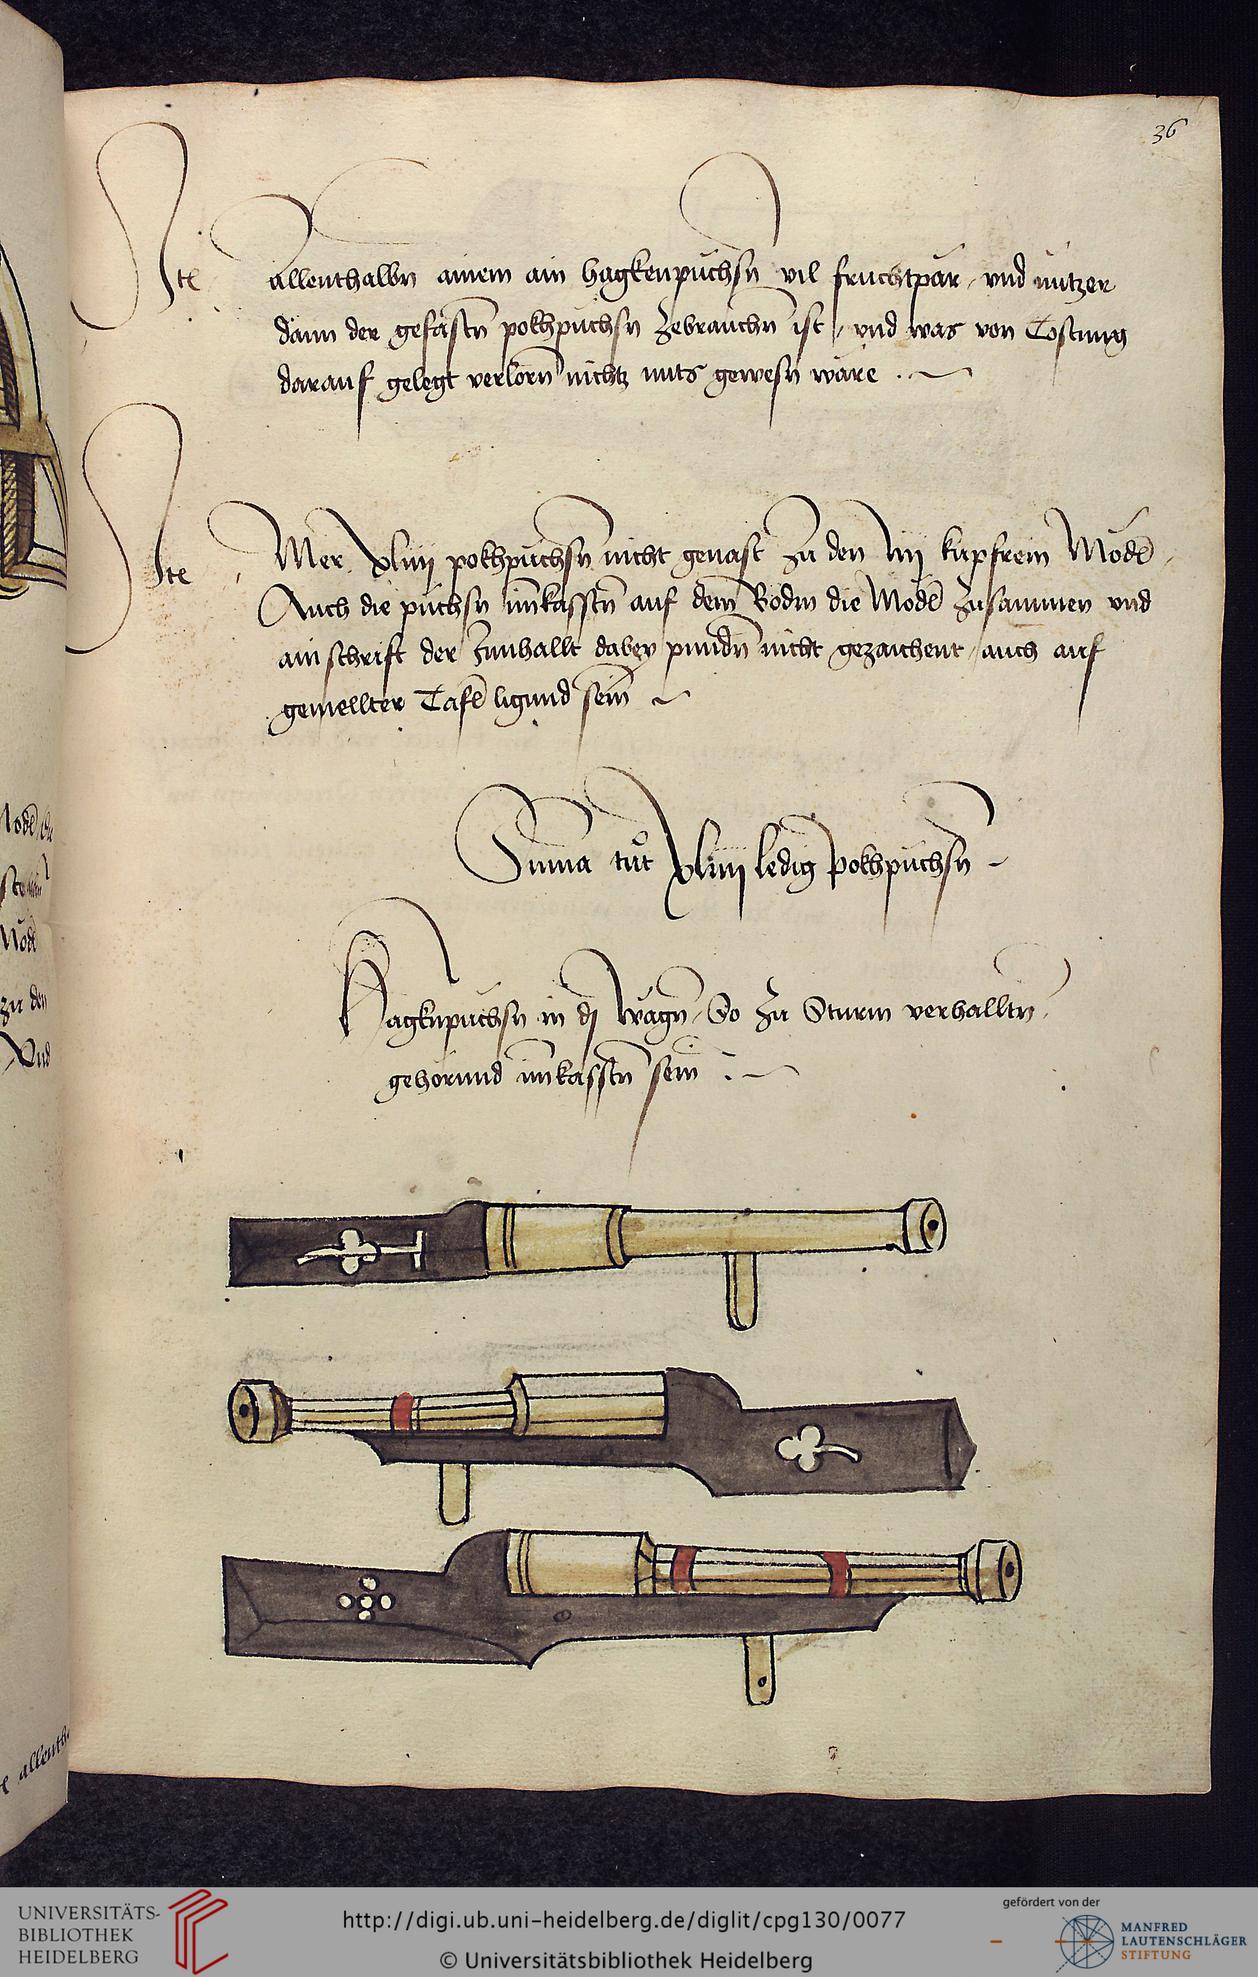 36
Ite allenthalbn ainem ain hagkenpuchsn vil fruchtpar, vnd nutzer
dann der gefastn pokhpuchsn zebrauchn ist, vnd was von Costung
darauf gelegt verlorn nichtz nuts gewesn wäre .
Ite Mer xliiij pokhpuchsn nicht gevast zu den iiij kupfrein Model,
Auch die puchsn im kasstn auf dem Bödm die Model zusammen vnd
ain schrift der Innhallt dabey pundn nicht gezaichent, auch auf
gemellter Tafel ligund sein
Suma tut xliiij ledig pokhpuchsn
Hagknpuchsn in dj wägn, So zu Sturm verhalltn,
gehörund im kasstn sein :
allenth
zu den
Vnd
UNIVERSITÄTS-
BIBLIOTHEK
HEIDELBERG
http://digi.ub.uni-heidelberg.de/diglit/cpg130/0077
© Universitätsbibliothek Heidelberg
gefördert von der
MANFRED
LAUTENSCHLÄGER
STIFTUNG